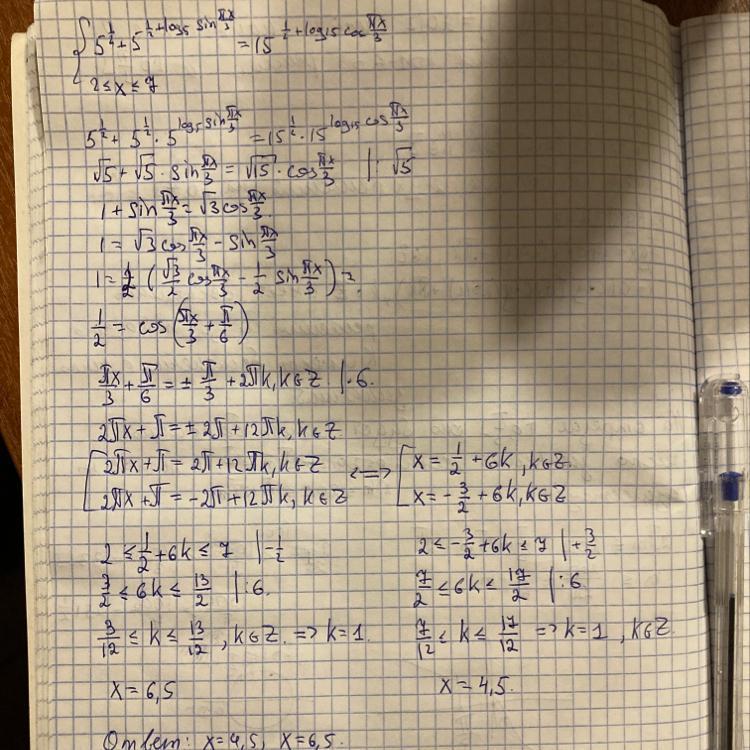 { 5^{1/2} + 5^{1/2 + log_5 sin πx/3} = 15^{1/2 + log_15 cos πx/3}
2 ≤ x ≤ 7
5^{1/2} + 5^{1/2} · 5^{log_5 sin πx/3} = 15^{1/2} · 15^{log_15 cos πx/3}
√5 + √5 · sin πx/3 = √15 · cos πx/3 | : √5
1 + sin πx/3 = √3 cos πx/3
1 = √3 cos πx/3 − sin πx/3
1 = 1/2 (√3/2 cos πx/3 − 1/2 sin πx/3) =
1/2 = cos(πx/3 + π/6)
πx/3 + π/6 = ± π/3 + 2πk, k∈Z | · 6
2πx + π = ± 2π + 12πk, k∈Z
[ 2πx + π = 2π + 12πk, k∈Z <=> [ x = 1/2 + 6k, k∈Z
2πx + π = −2π + 12πk, k∈Z x = −3/2 + 6k, k∈Z
2 ≤ 1/2 + 6k ≤ 7 | −1/2
3/2 ≤ 6k ≤ 13/2 | : 6
3/12 ≤ k ≤ 13/12, k∈Z => k=1.
x = 6,5
2 ≤ −3/2 + 6k ≤ 7 | +3/2
7/2 ≤ 6k ≤ 17/2 | : 6
7/12 ≤ k ≤ 17/12 => k=1, k∈Z
x = 4,5.
Ответ: x=4,5, x=6,5.